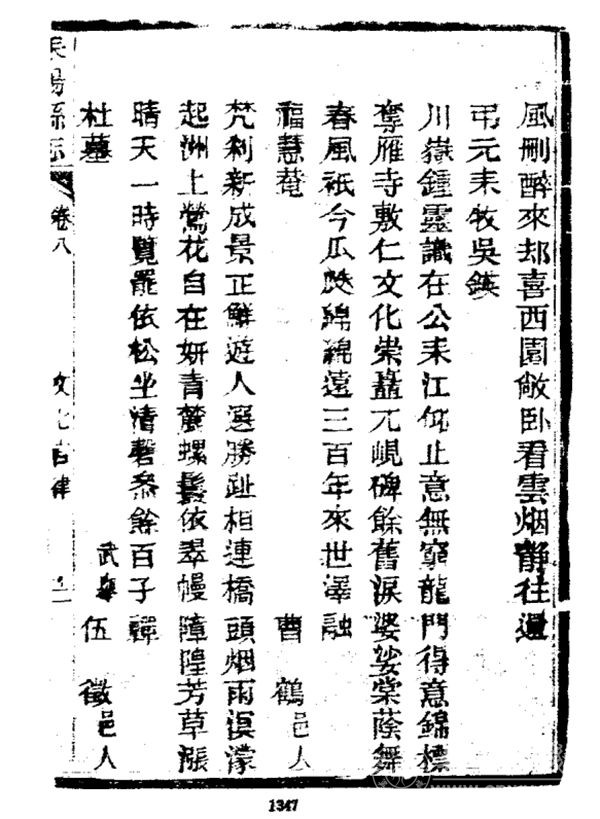 風刪醉來却喜西園敞卧看雲烟靜往還
弔元耒牧吳鍈
川嶽鍾靈識在公耒江仰止意無窮龍門得意錦標
奪雁寺敷仁文化崇矗兀峴碑餘舊淚婆娑棠蔭舞
春風祇今瓜瓞綿綿遠三百年來世澤融
福慧菴 曹鶴邑人
梵刹新成景正鮮遊人選勝趾相連橋頭烟雨溟濛
起洲上鶯花自在妍青麓螺鬟依翠幔隍芳草漲
晴天一時覽罷依松坐清磬參餘百子禪
杜墓 武舉伍徵邑人
耒陽縣志
卷八
七言律
1347